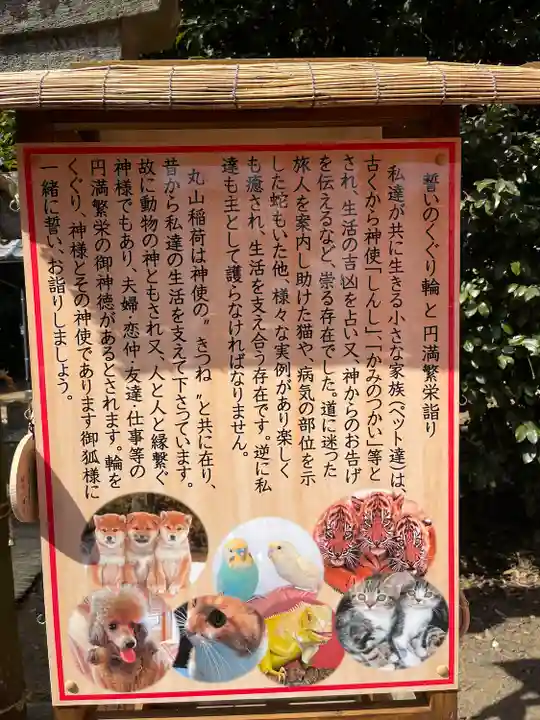 誓いのくぐり輪 と 円満繁栄詣り
私達が共に生きる小さな家族（ペット達）は、
古くから神使「しんし」「かみのつかい」等と
され、生活の吉凶を占い又、神からのお告げ
を伝えるなど、崇る存在でした。道に迷った
旅人を案内し助けた猫や、病気の部位を示
した蛇もいた他、様々な実例があり楽しく
も癒され、生活を支え合う存在です。逆に私
達も主として護らなければなりません。
丸山稲荷は神使の〝きつね〟と共に在り、
昔から私達の生活を支えて下さつています。
故に動物の神ともされ又、人と人と縁繋ぐ
神様でもあり、夫婦・恋仲・友達・仕事等の
円満繁栄の御神徳があるとされます。輪を
くぐり、神様とその神使であります御狐様に
一緒に誓い、お詣りしましょう。